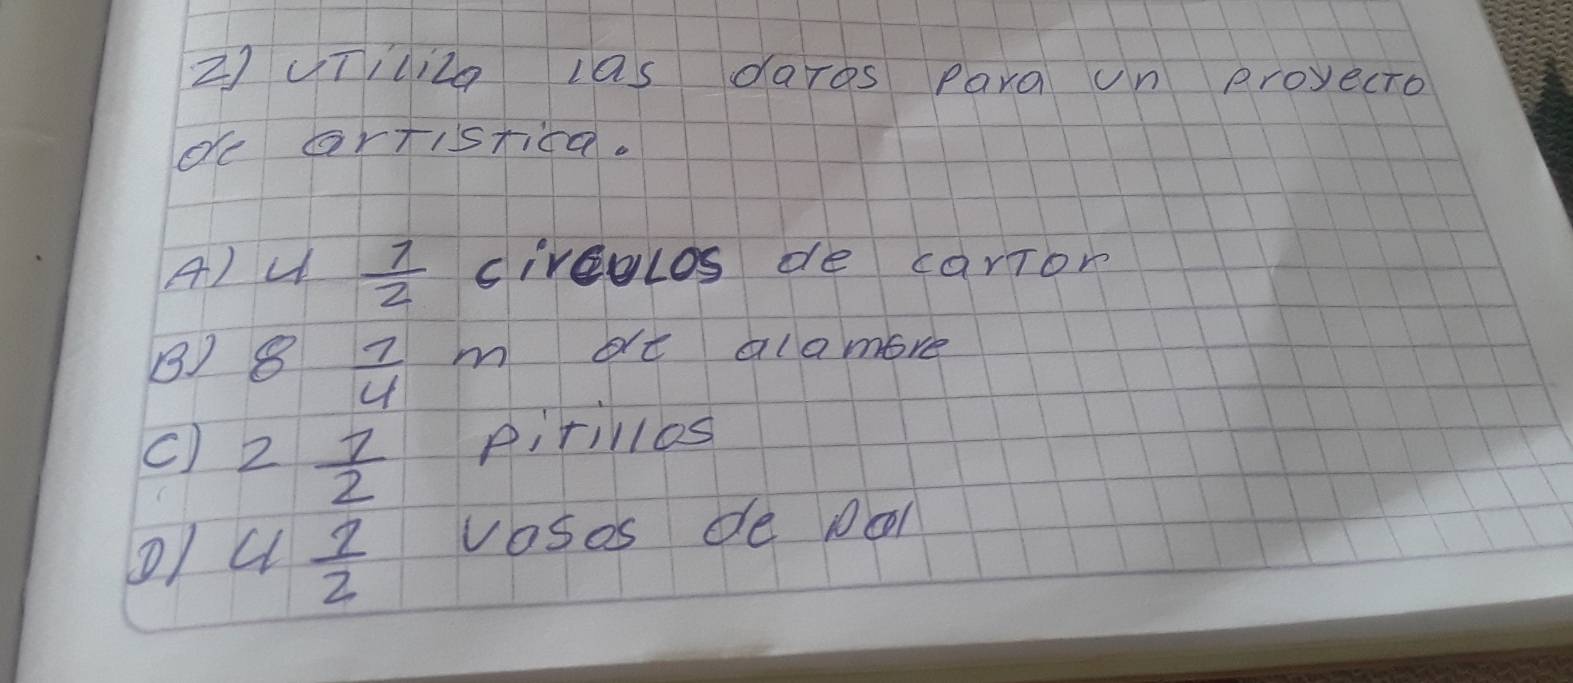 2) utiliza las datos para un proyecto
de artistica.
A) 4 1/2 circulos de carton
B) 8 1/4 m de alambre
C) 2 1/2 pitillos
D) 4 1/2 vasos de pal